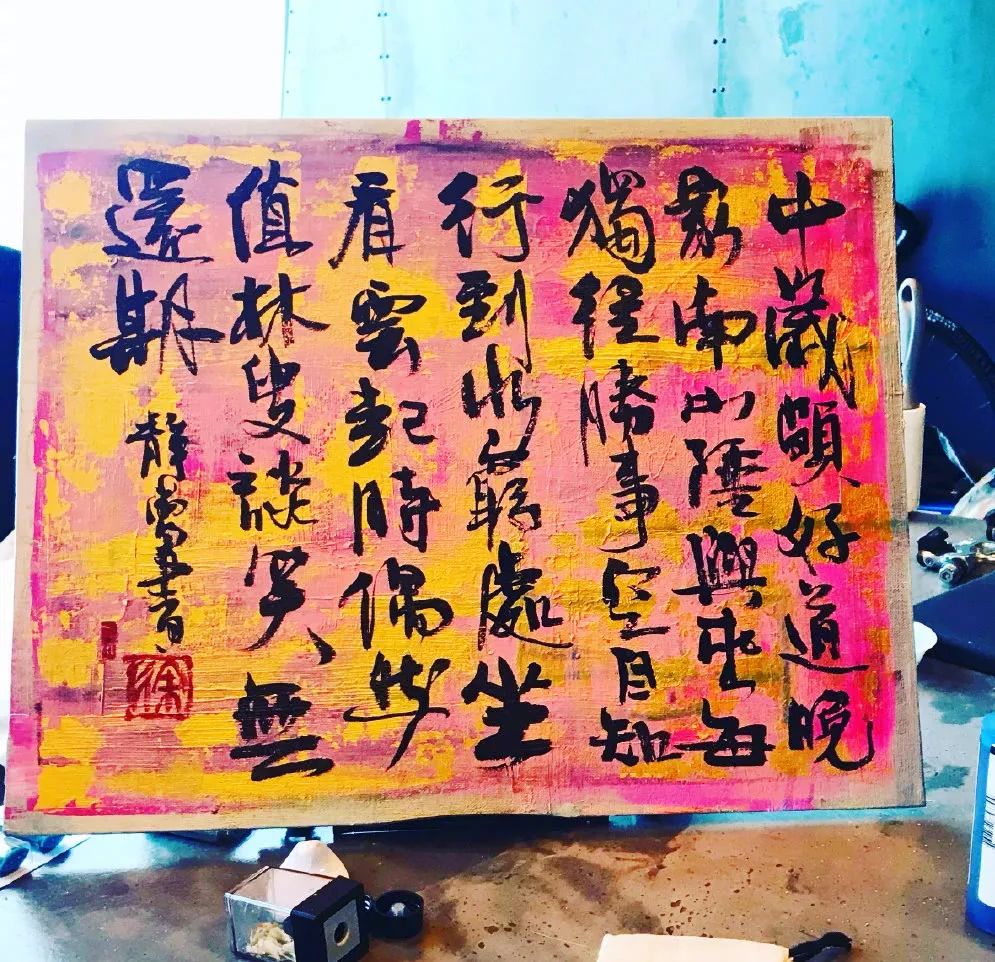 中歲頗好道晚
家南山陲興來每
獨往勝事空自知
行到水窮處坐
看雲起時偶然
值林叟談笑無
還期
靜書
徐